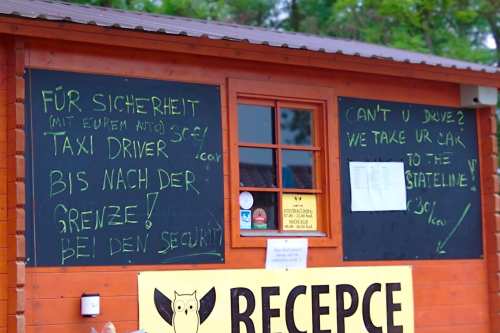 FÜR SICHERHEIT
(MIT EUREM AUTO) 30€/car
TAXI DRIVER
BIS NACH DER
GRENZE!
BEI DEN SECURITY
CAN'T U DRIVE?
WE TAKE UR CAR
TO THE
STATELINE!
30€/car
RECEPCE